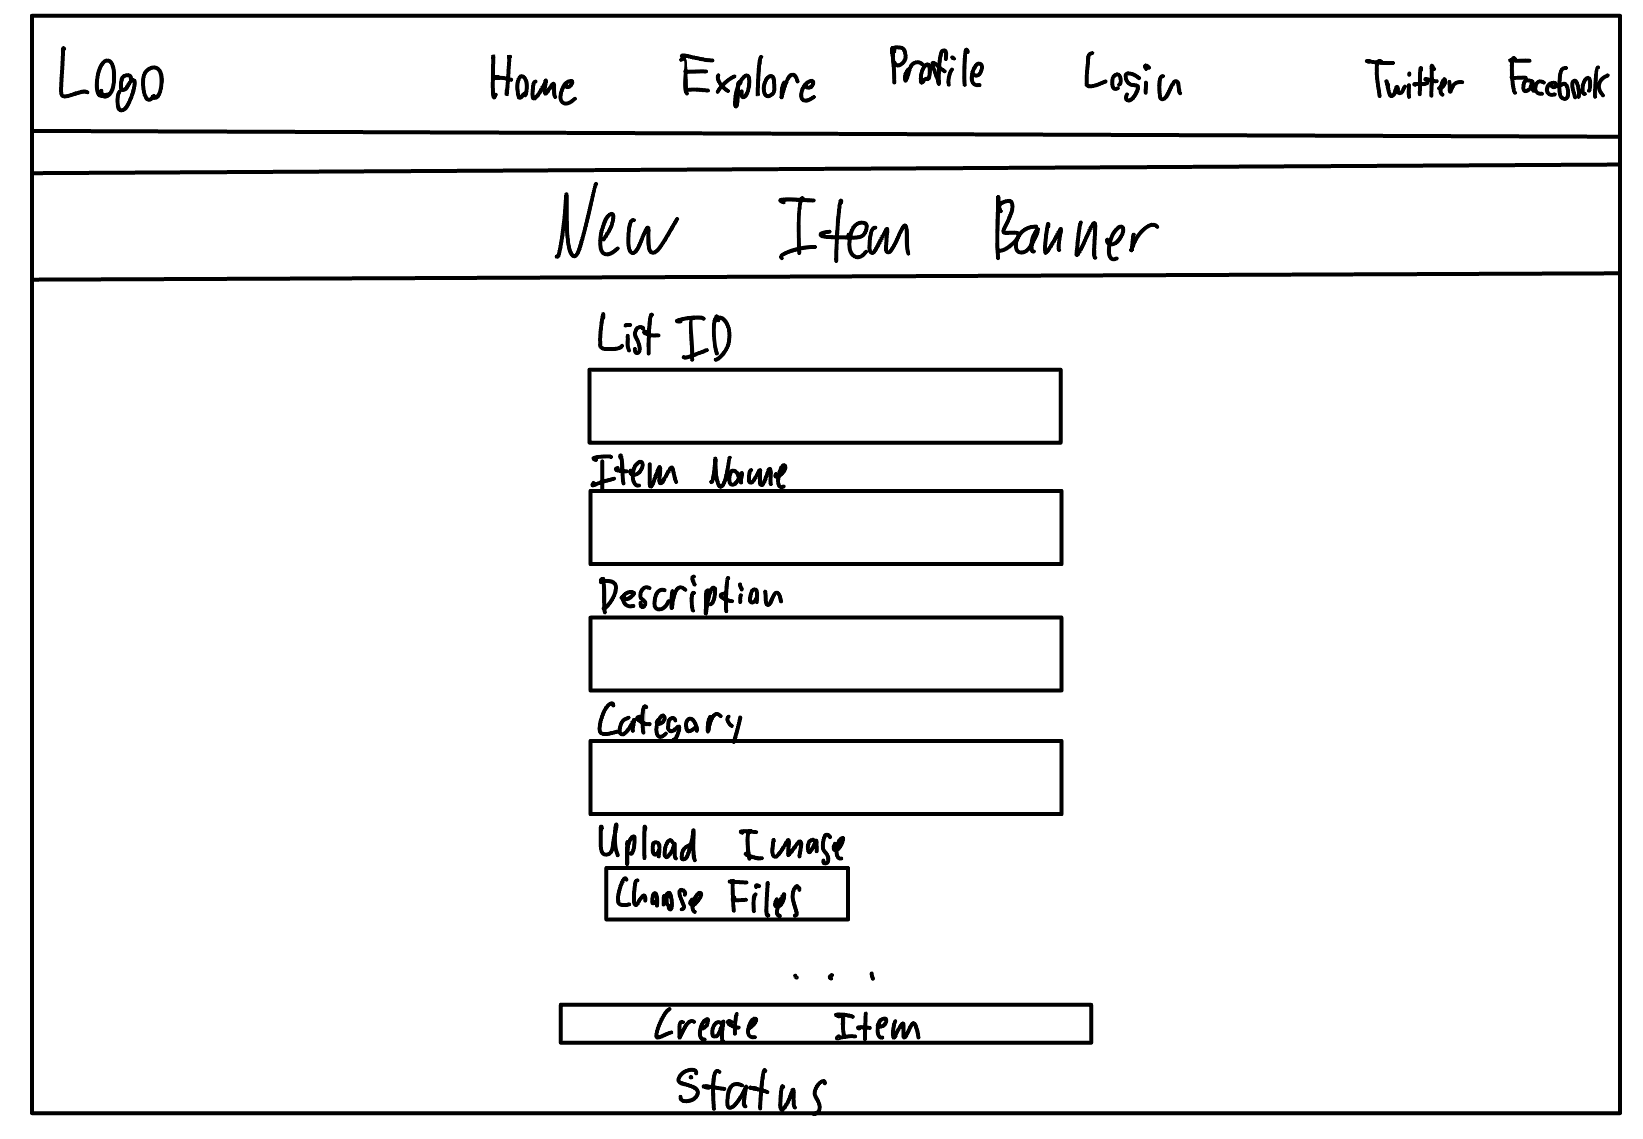 Logo Home Explore Profile Login Twitter Facebook
New Item Banner
List ID
Item Name
Description
Category
Upload Image
Choose Files
...
Create Item
Status